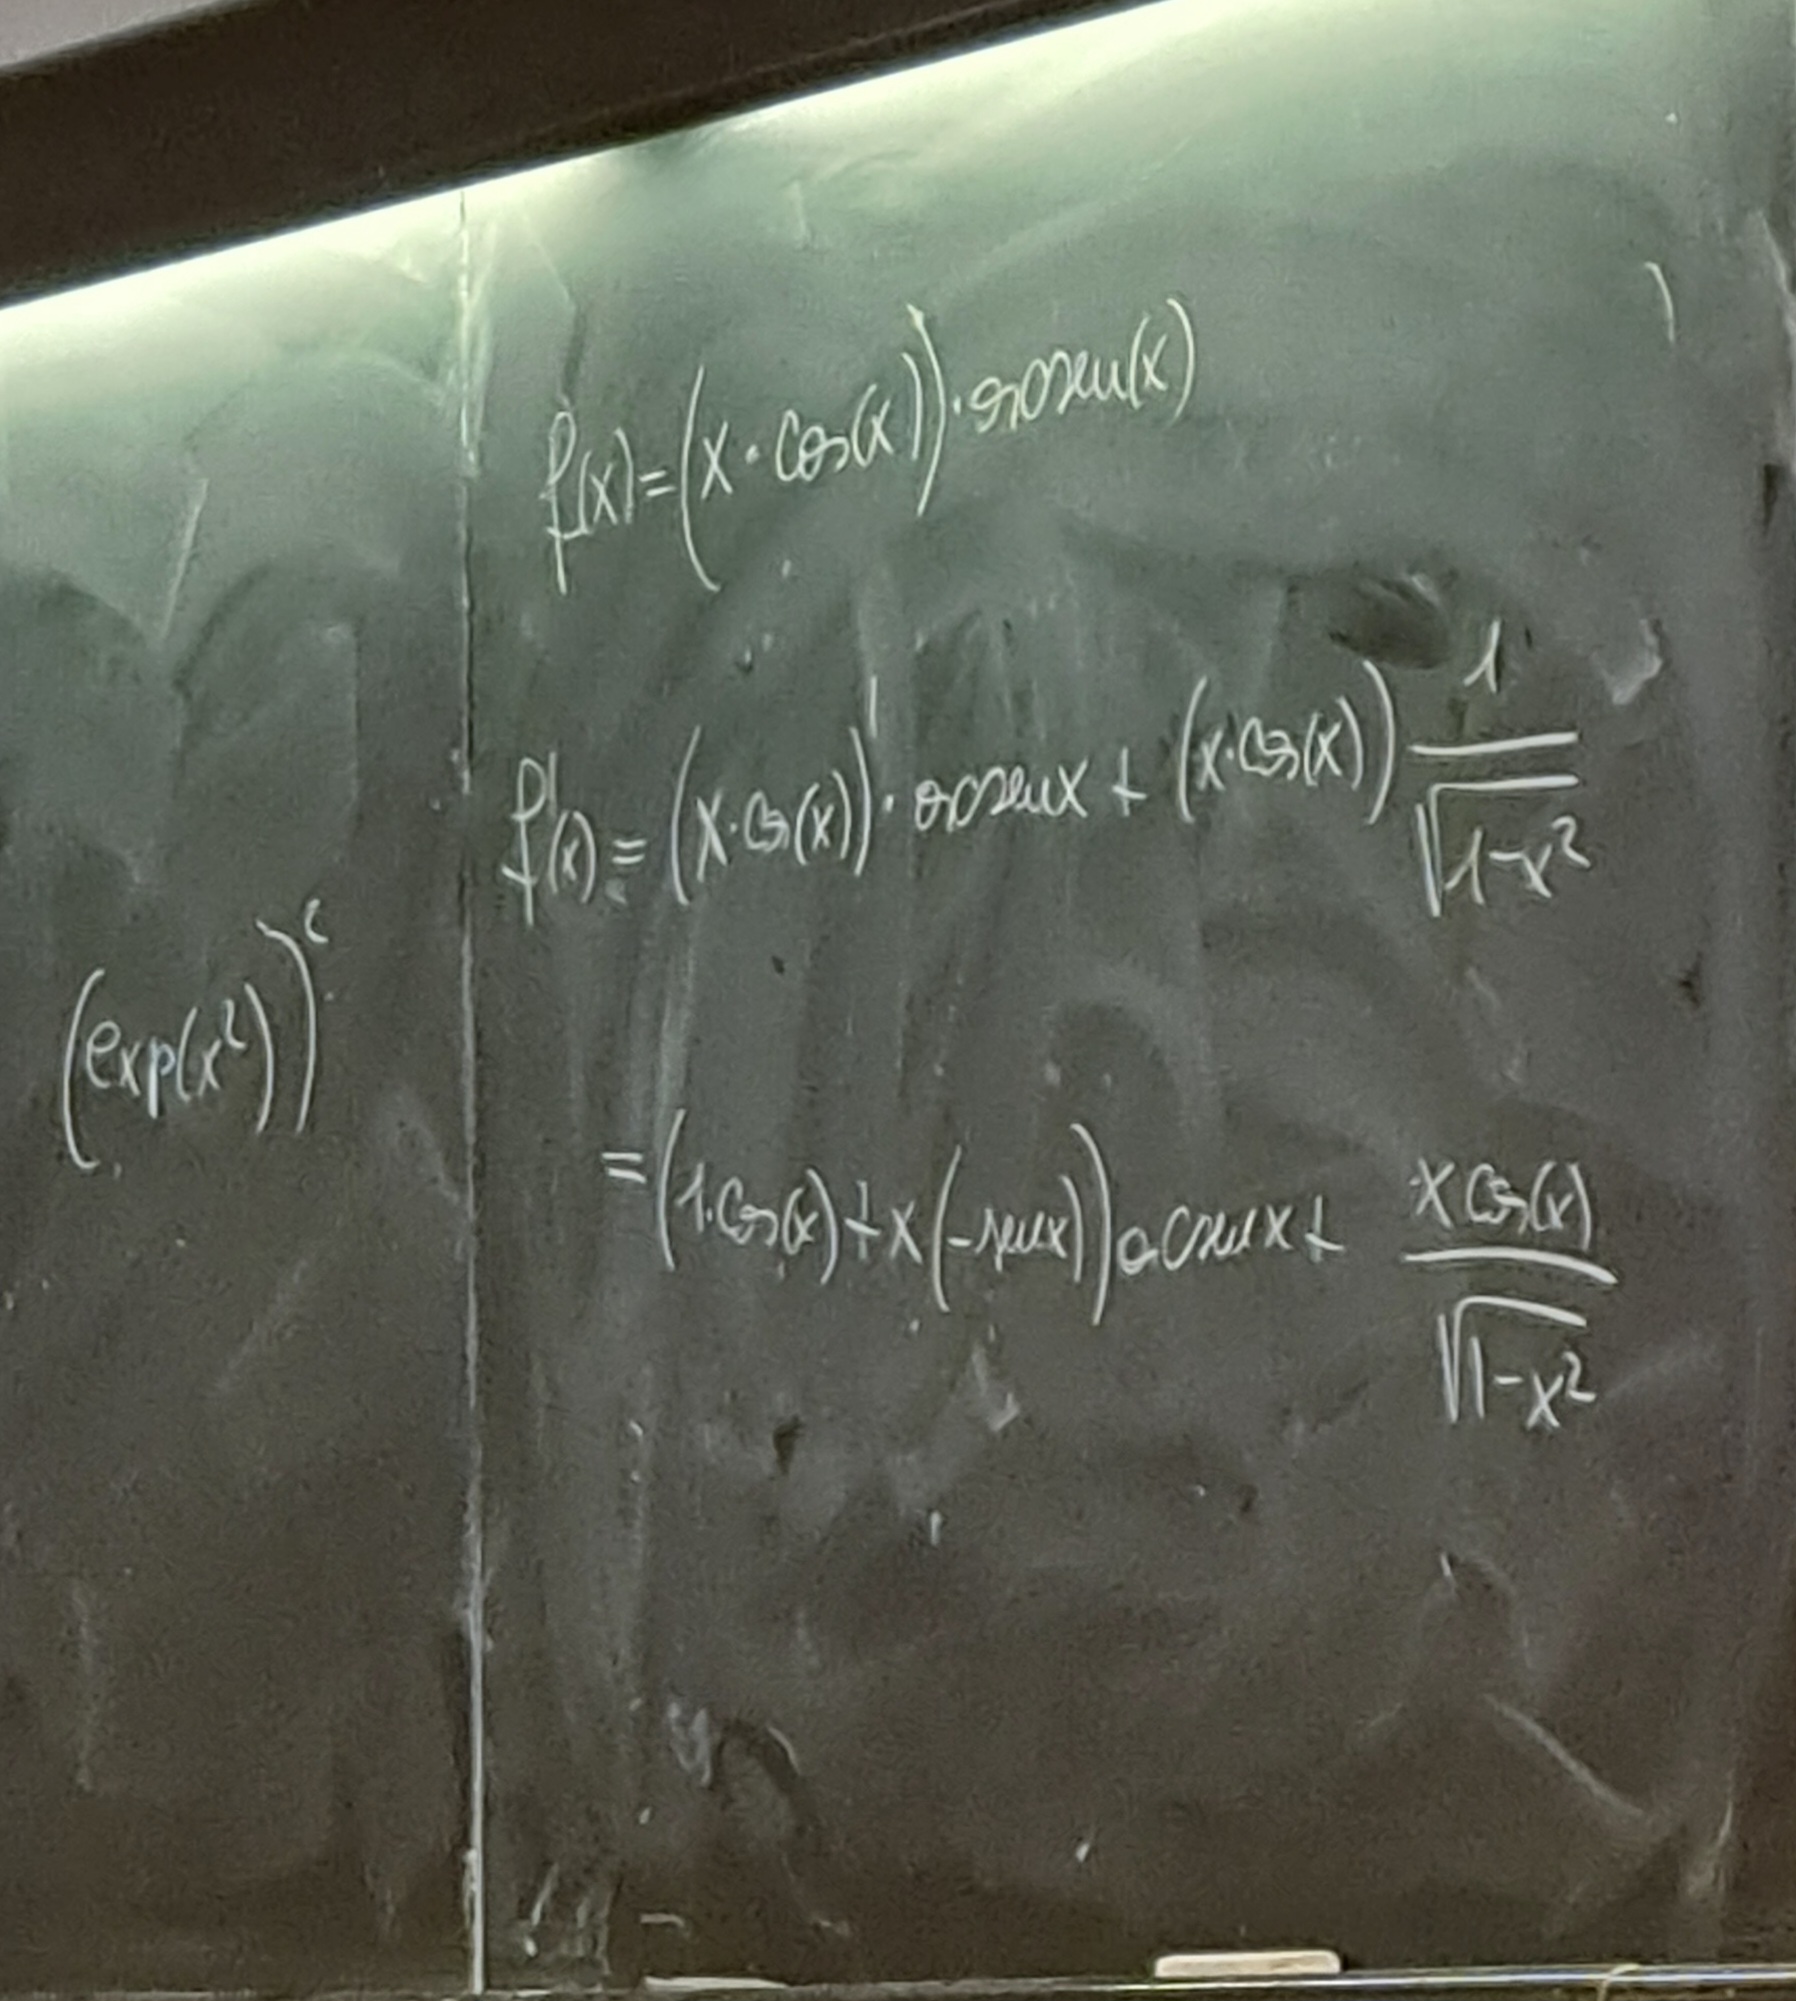 f(x) = (x · cos(x)) · arcsen(x)
f'(x) = (x · cos(x))' · arcsen x + (x · cos(x)) 1/√(1-x²)
(exp(x²))'
= (1 · cos(x) + x (-sen x)) arcsen x + x cos(x)/√(1-x²)